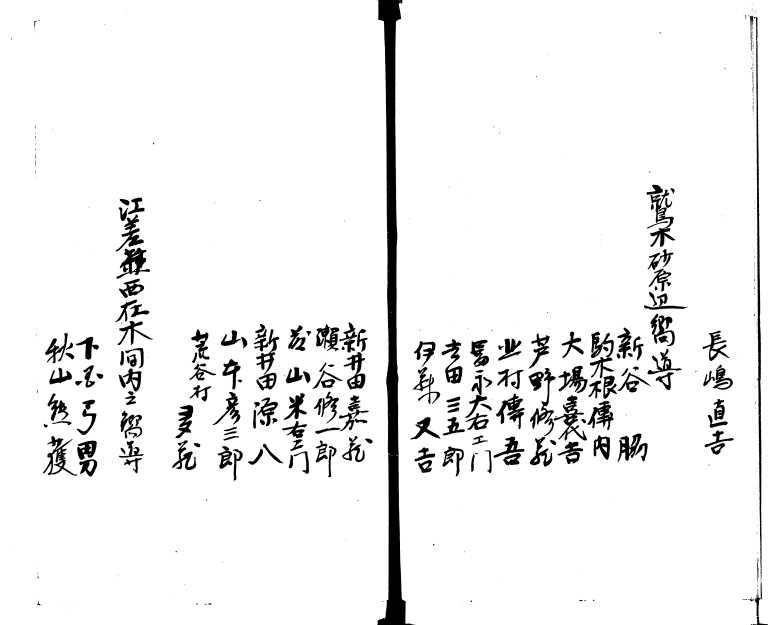 長嶋直吉
鷲木砂原辺嚮導
新谷 脇
駒木根傳内
大場嘉代吉
芦野修蔵
北村傳吾
馬永大右エ門
吉田三五郎
伊藤又吉
新井田嘉蔵
瀬谷修一郎
山米右エ門
新井田源八
山本彦三郎
荒谷村 多蔵
江差並西在木間内之嚮導
下 弓男
秋山熊蔵